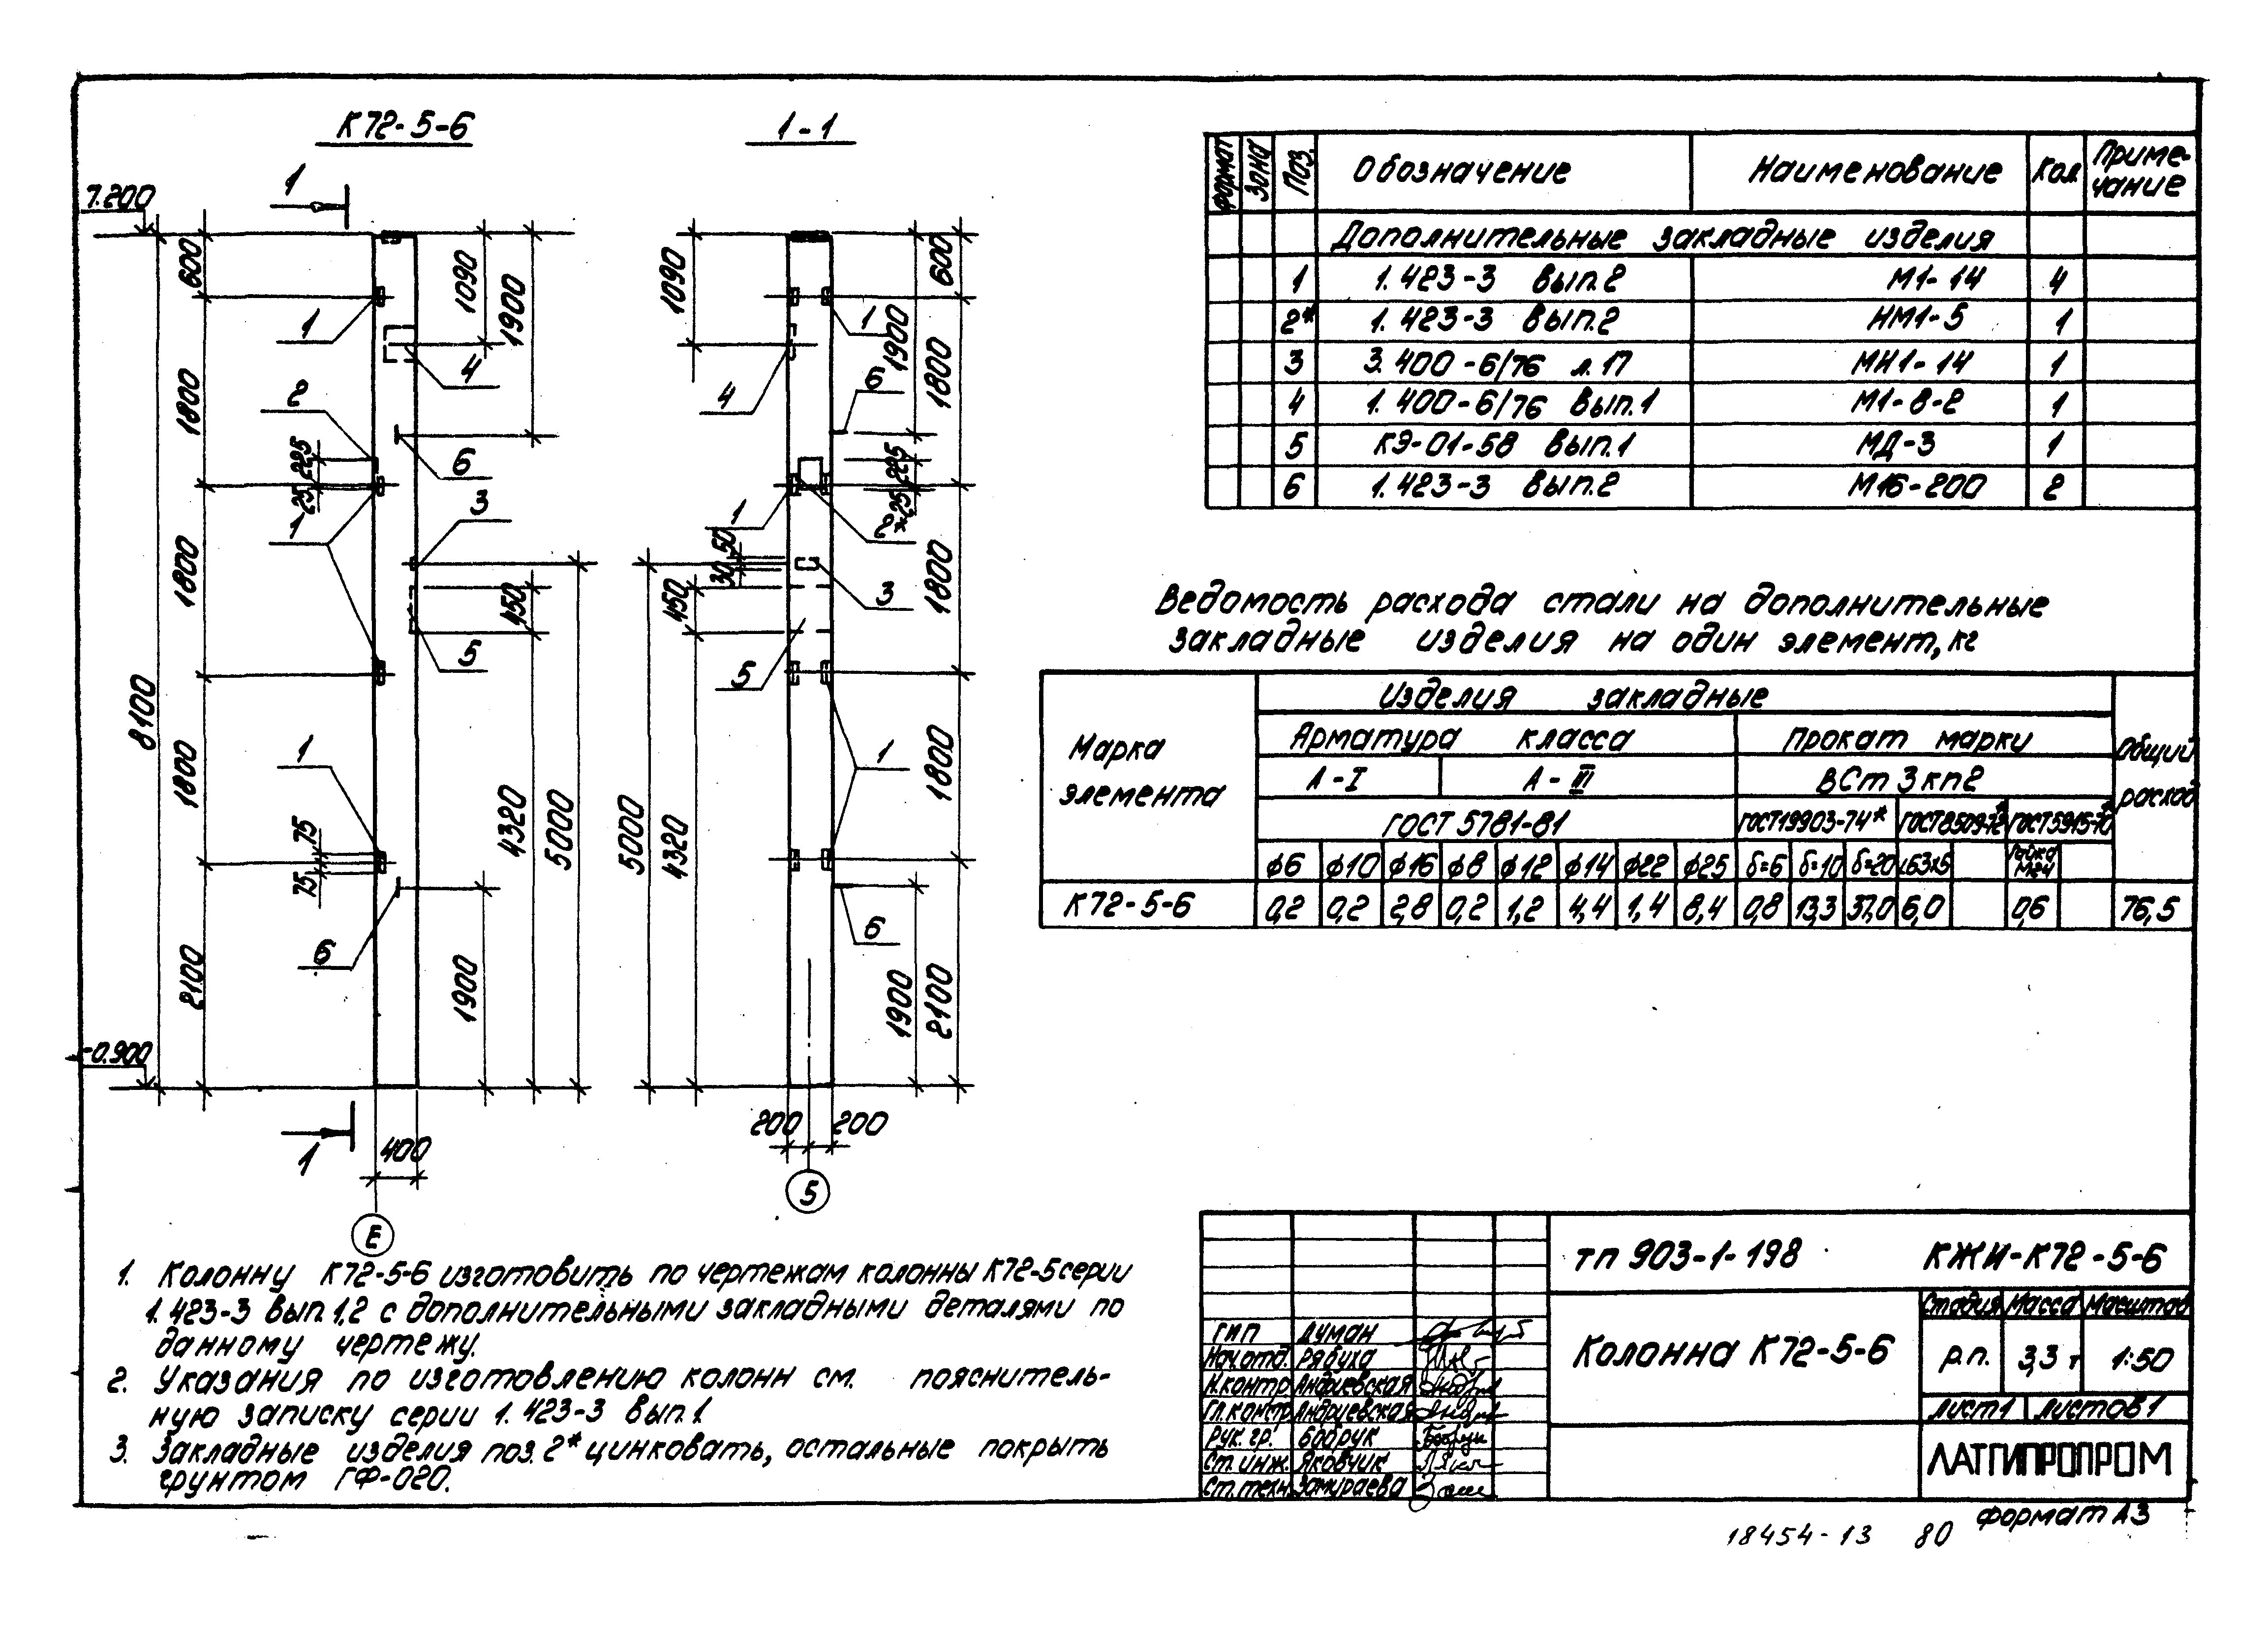 К72-5-6
1-1
1
7.200
600
1800
1800
1800
2100
8100
-0.900
1090
1900
225
25
450
4320
5000
1900
75
75
1
2
1
1
6
4
6
3
5
1
400
Е
1090
4
1
5
5000
4320
450
50
30
600
1900
1800
225
25
1800
1800
1900
2100
1
6
2*
3
1
6
200
200
5
Формат
Зона
Поз.
Обозначение
Наименование
Кол.
Приме-
чание
Дополнительные закладные изделия
1 1.423-3 вып.2 М1-14 4
2* 1.423-3 вып.2 НМ1-5 1
3 3.400-6/76 л.17 МН1-14 1
4 1.400-6/76 вып.1 М1-8-2 1
5 КЭ-01-58 вып.1 МД-3 1
6 1.423-3 вып.2 М16-200 2
Ведомость расхода стали на дополнительные
закладные изделия на один элемент, кг
Марка
элемента
Изделия закладные
Общий
расход
Арматура класса
Прокат марки
А-I
А-III
ВСт3кп2
ГОСТ 5781-81
ГОСТ19903-74*
ГОСТ8509-72*
ГОСТ5915-70*
ф6 ф10 ф16 ф8 ф12 ф14 ф22 ф25 δ=6 δ=10 δ=20 L63х5 Гайка М24
К72-5-6 0,2 0,2 2,8 0,2 1,2 4,4 1,4 8,4 0,8 13,3 37,0 6,0 0,6 76,5
1. Колонну К72-5-6 изготовить по чертежам колонны К72-5 серии
1.423-3 вып.1,2 с дополнительными закладными деталями по
данному чертежу.
2. Указания по изготовлению колонн см. пояснитель-
ную записку серии 1.423-3 вып.1.
3. Закладные изделия поз.2* цинковать, остальные покрыть
грунтом ГФ-020.
ТП 903-1-198 КЖИ-К72-5-6
Колонна К72-5-6
Стадия Масса Масштаб
Р.П. 3,3 т 1:50
Лист 1 Листов 1
ЛАТГИПРОПРОМ
ГИП Думан
Нач.отд. Рябуха
Н.контр. Андриевская
Гл.констр. Андриевская
Рук. гр. Бобрук
Ст.инж. Яковчик
Ст.техн. Замураева
Формат А3
18454-13 80